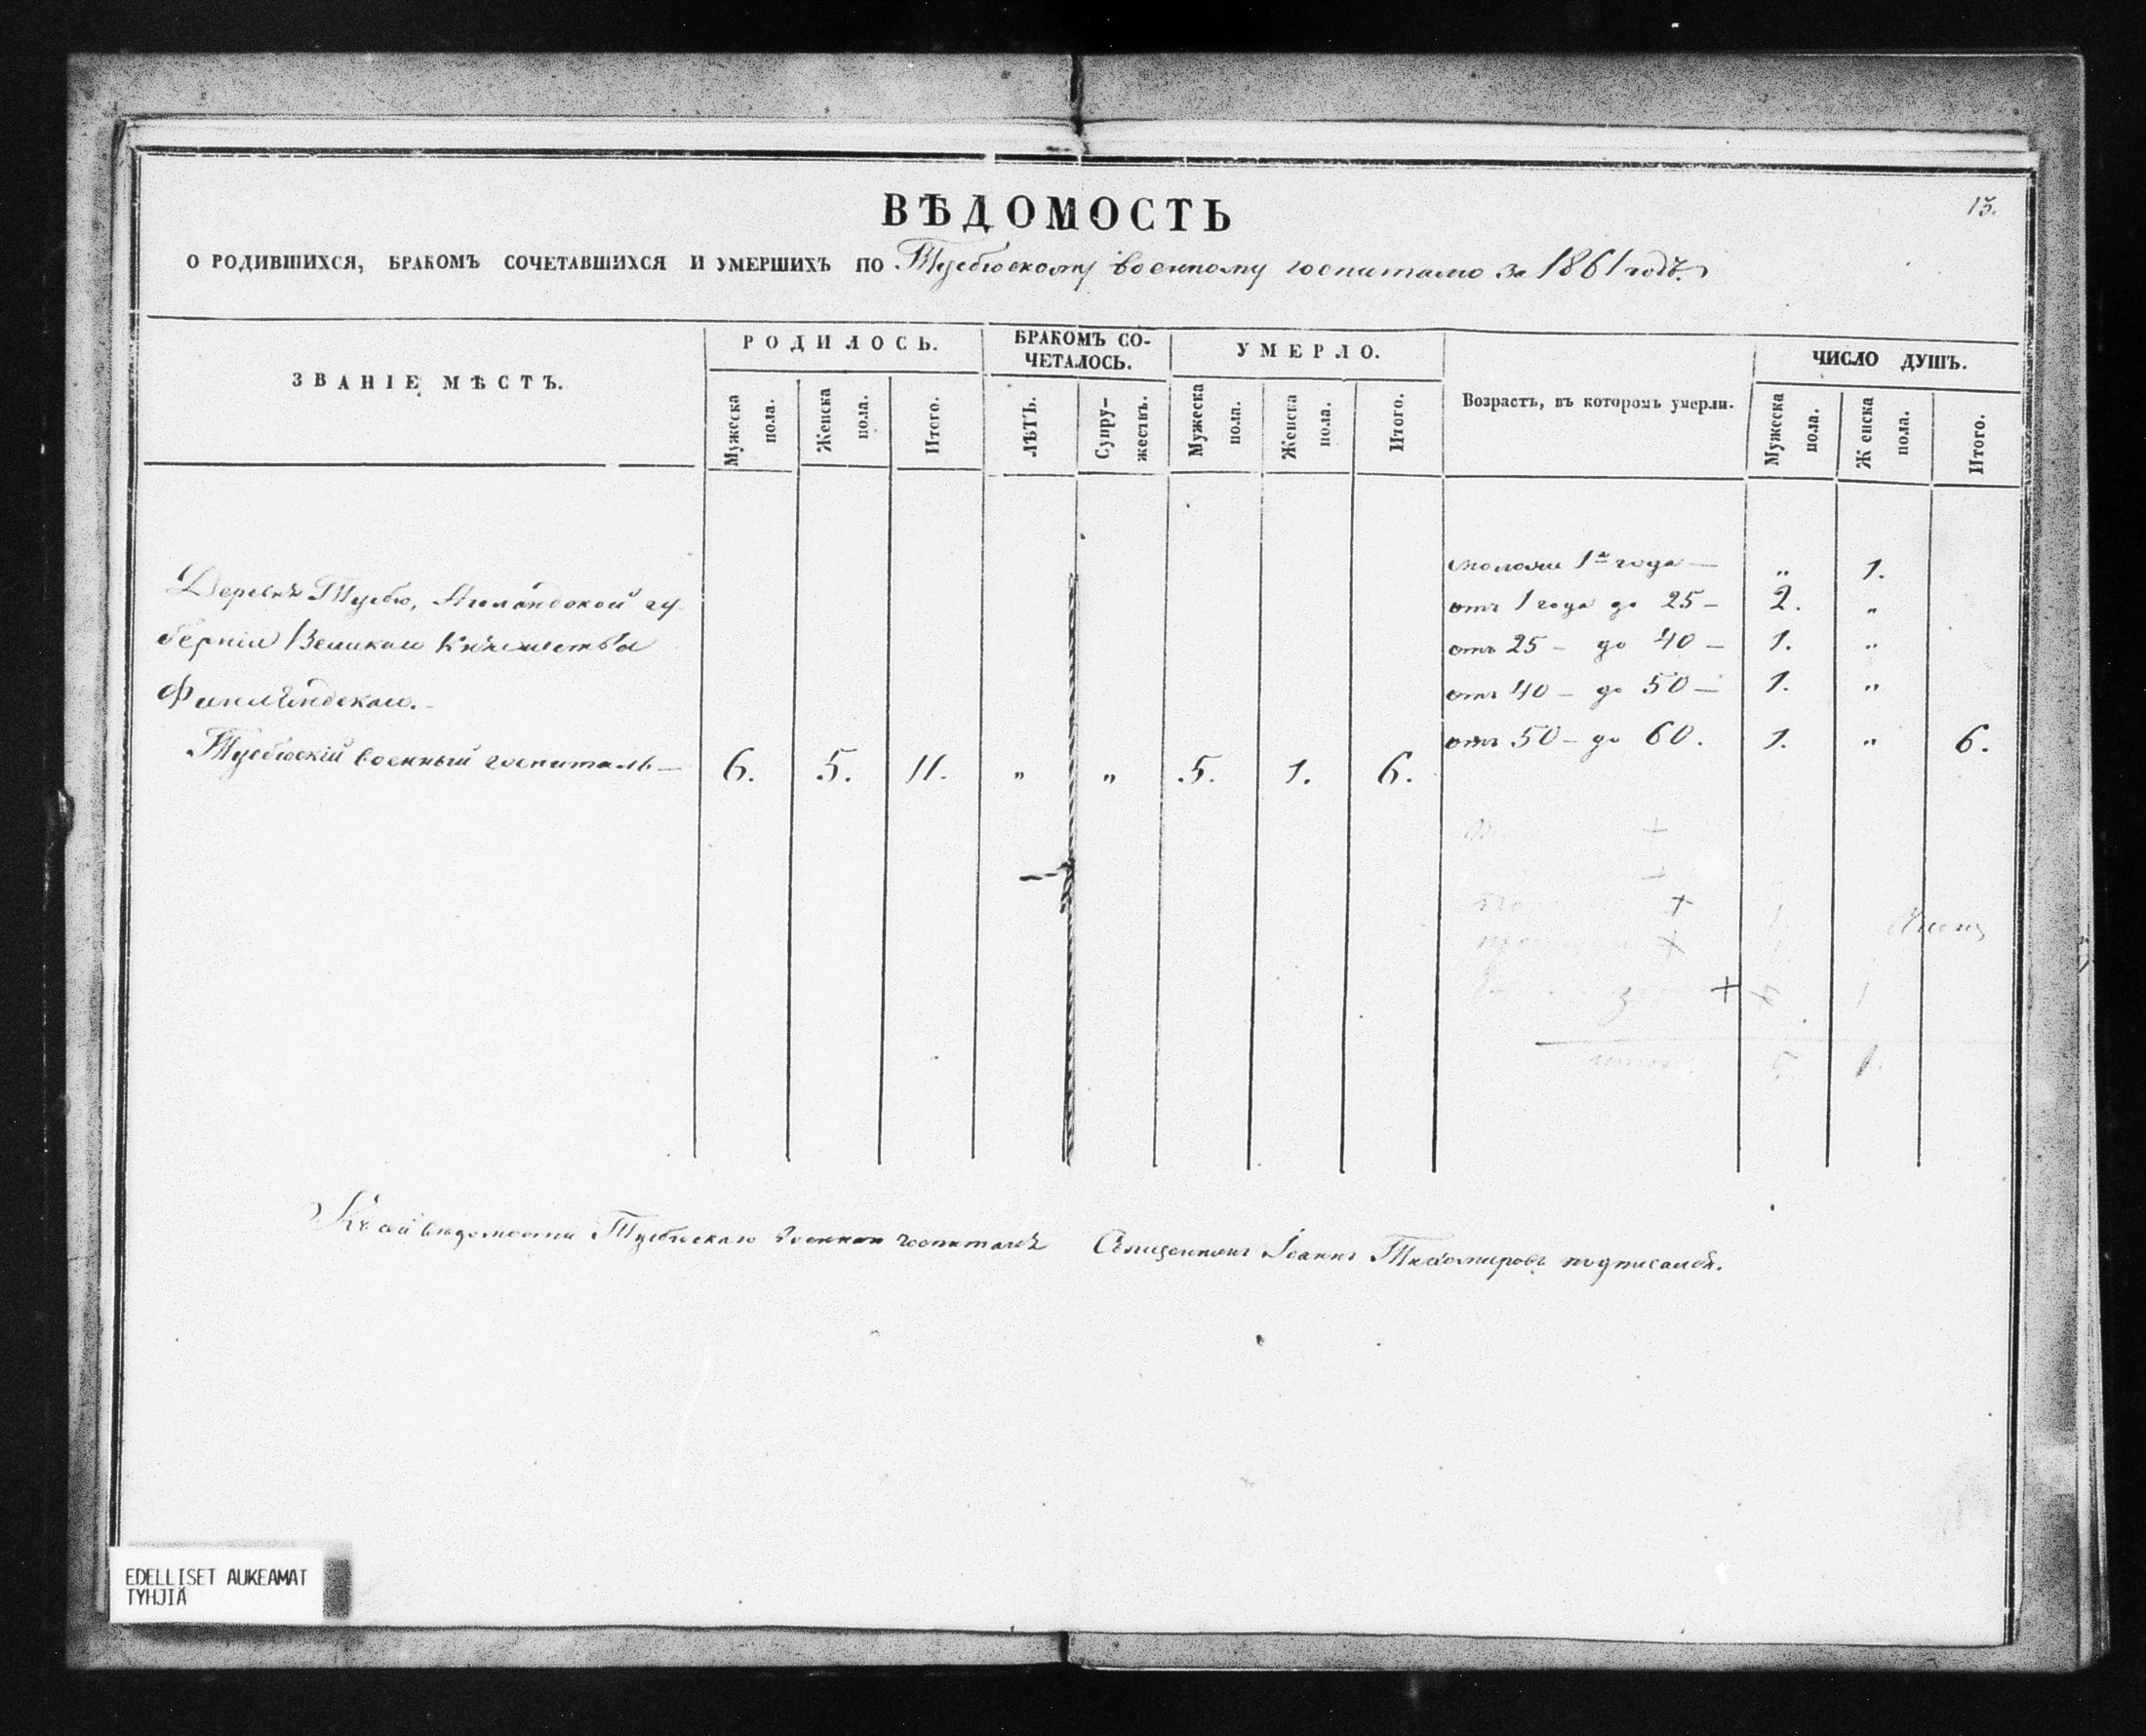 13.
ВѢДОМОСТЬ
О РОДИВШИХСЯ, БРАКОМЪ СОЧЕТАВШИХСЯ И УМЕРШИХЪ ПО Тусбюскому военному госпиталю за 1861 годъ.
ЗВАНІЕ МѢСТЪ.
РОДИЛОСЬ.
Мужеска пола.
Женска пола.
Итого.
БРАКОМЪ СО-
ЧЕТАЛОСЬ.
ЛѢТЪ.
Супру-
жествъ.
УМЕРЛО.
Мужеска пола.
Женска пола.
Итого.
Возрастъ, въ которомъ умерли.
ЧИСЛО ДУШЪ.
Мужеска пола.
Женска пола.
Итого.
Деревнѣ Тусбю, Нюландской гу
берніи Великаго Княжества
Финляндскаго.
Тусбюскій военный госпиталь — 6. 5. 11. " " 5. 1. 6.
1го года — " 1.
отъ 1 года до 25 — 2. "
отъ 25 — до 40 — 1. "
отъ 40 — до 50 — 1. "
отъ 50 — до 60. 1. " 6.
5 1.
Къ сей вѣдомости Тусбюскаго военнаго госпиталя Священникъ Іоаннъ Тихомировъ подписался.
EDELLISET AUKEAMAT
TYHJIÄ